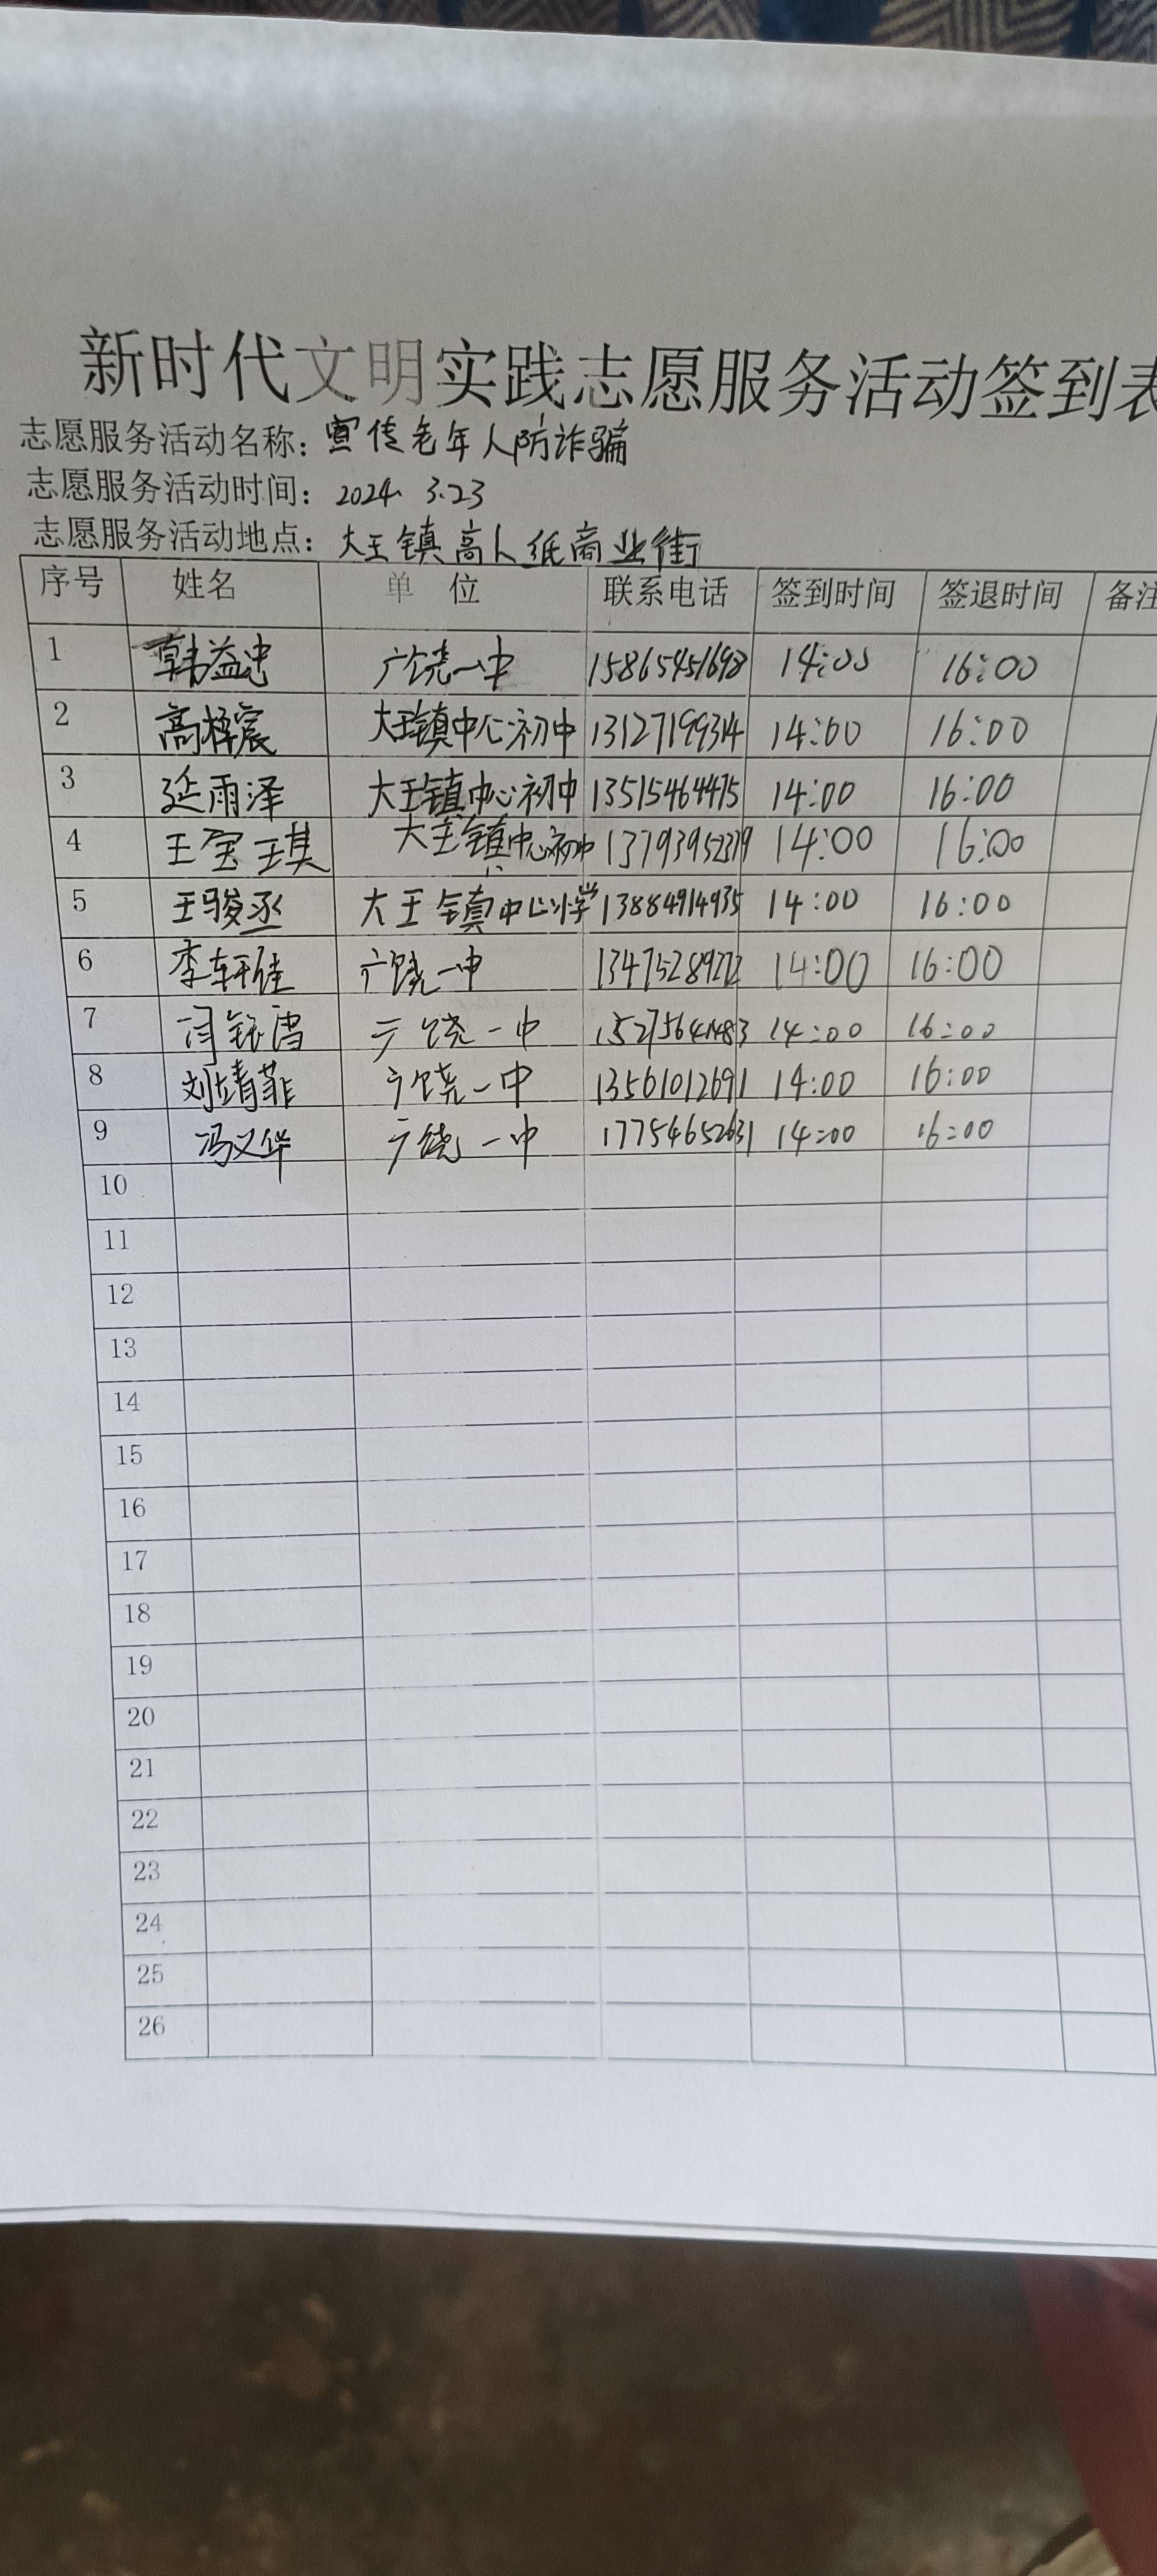 新时代文明实践志愿服务活动签到表
志愿服务活动名称：宣传老年人防诈骗
志愿服务活动时间：2024. 3.23
志愿服务活动地点：大王镇高人纸商业街
序号 姓名 单 位 联系电话 签到时间 签退时间 备注
1 韩益忠 广饶一中 15865451698 14:00 16:00
2 高梓宸 大王镇中心初中 13127199314 14:00 16:00
3 延雨泽 大王镇中心初中 13515464475 14:00 16:00
4 王玺琪 大王镇中心初中 13793952379 14:00 16:00
5 王骏丞 大王镇中心小学 13884914935 14:00 16:00
6 李轩佳 广饶一中 13475289272 14:00 16:00
7 闫 广饶一中 14:00 16:00
8 刘靖菲 广饶一中 13561012691 14:00 16:00
9 冯义华 广饶一中 17754652631 14:00 16:00
10
11
12
13
14
15
16
17
18
19
20
21
22
23
24
25
26